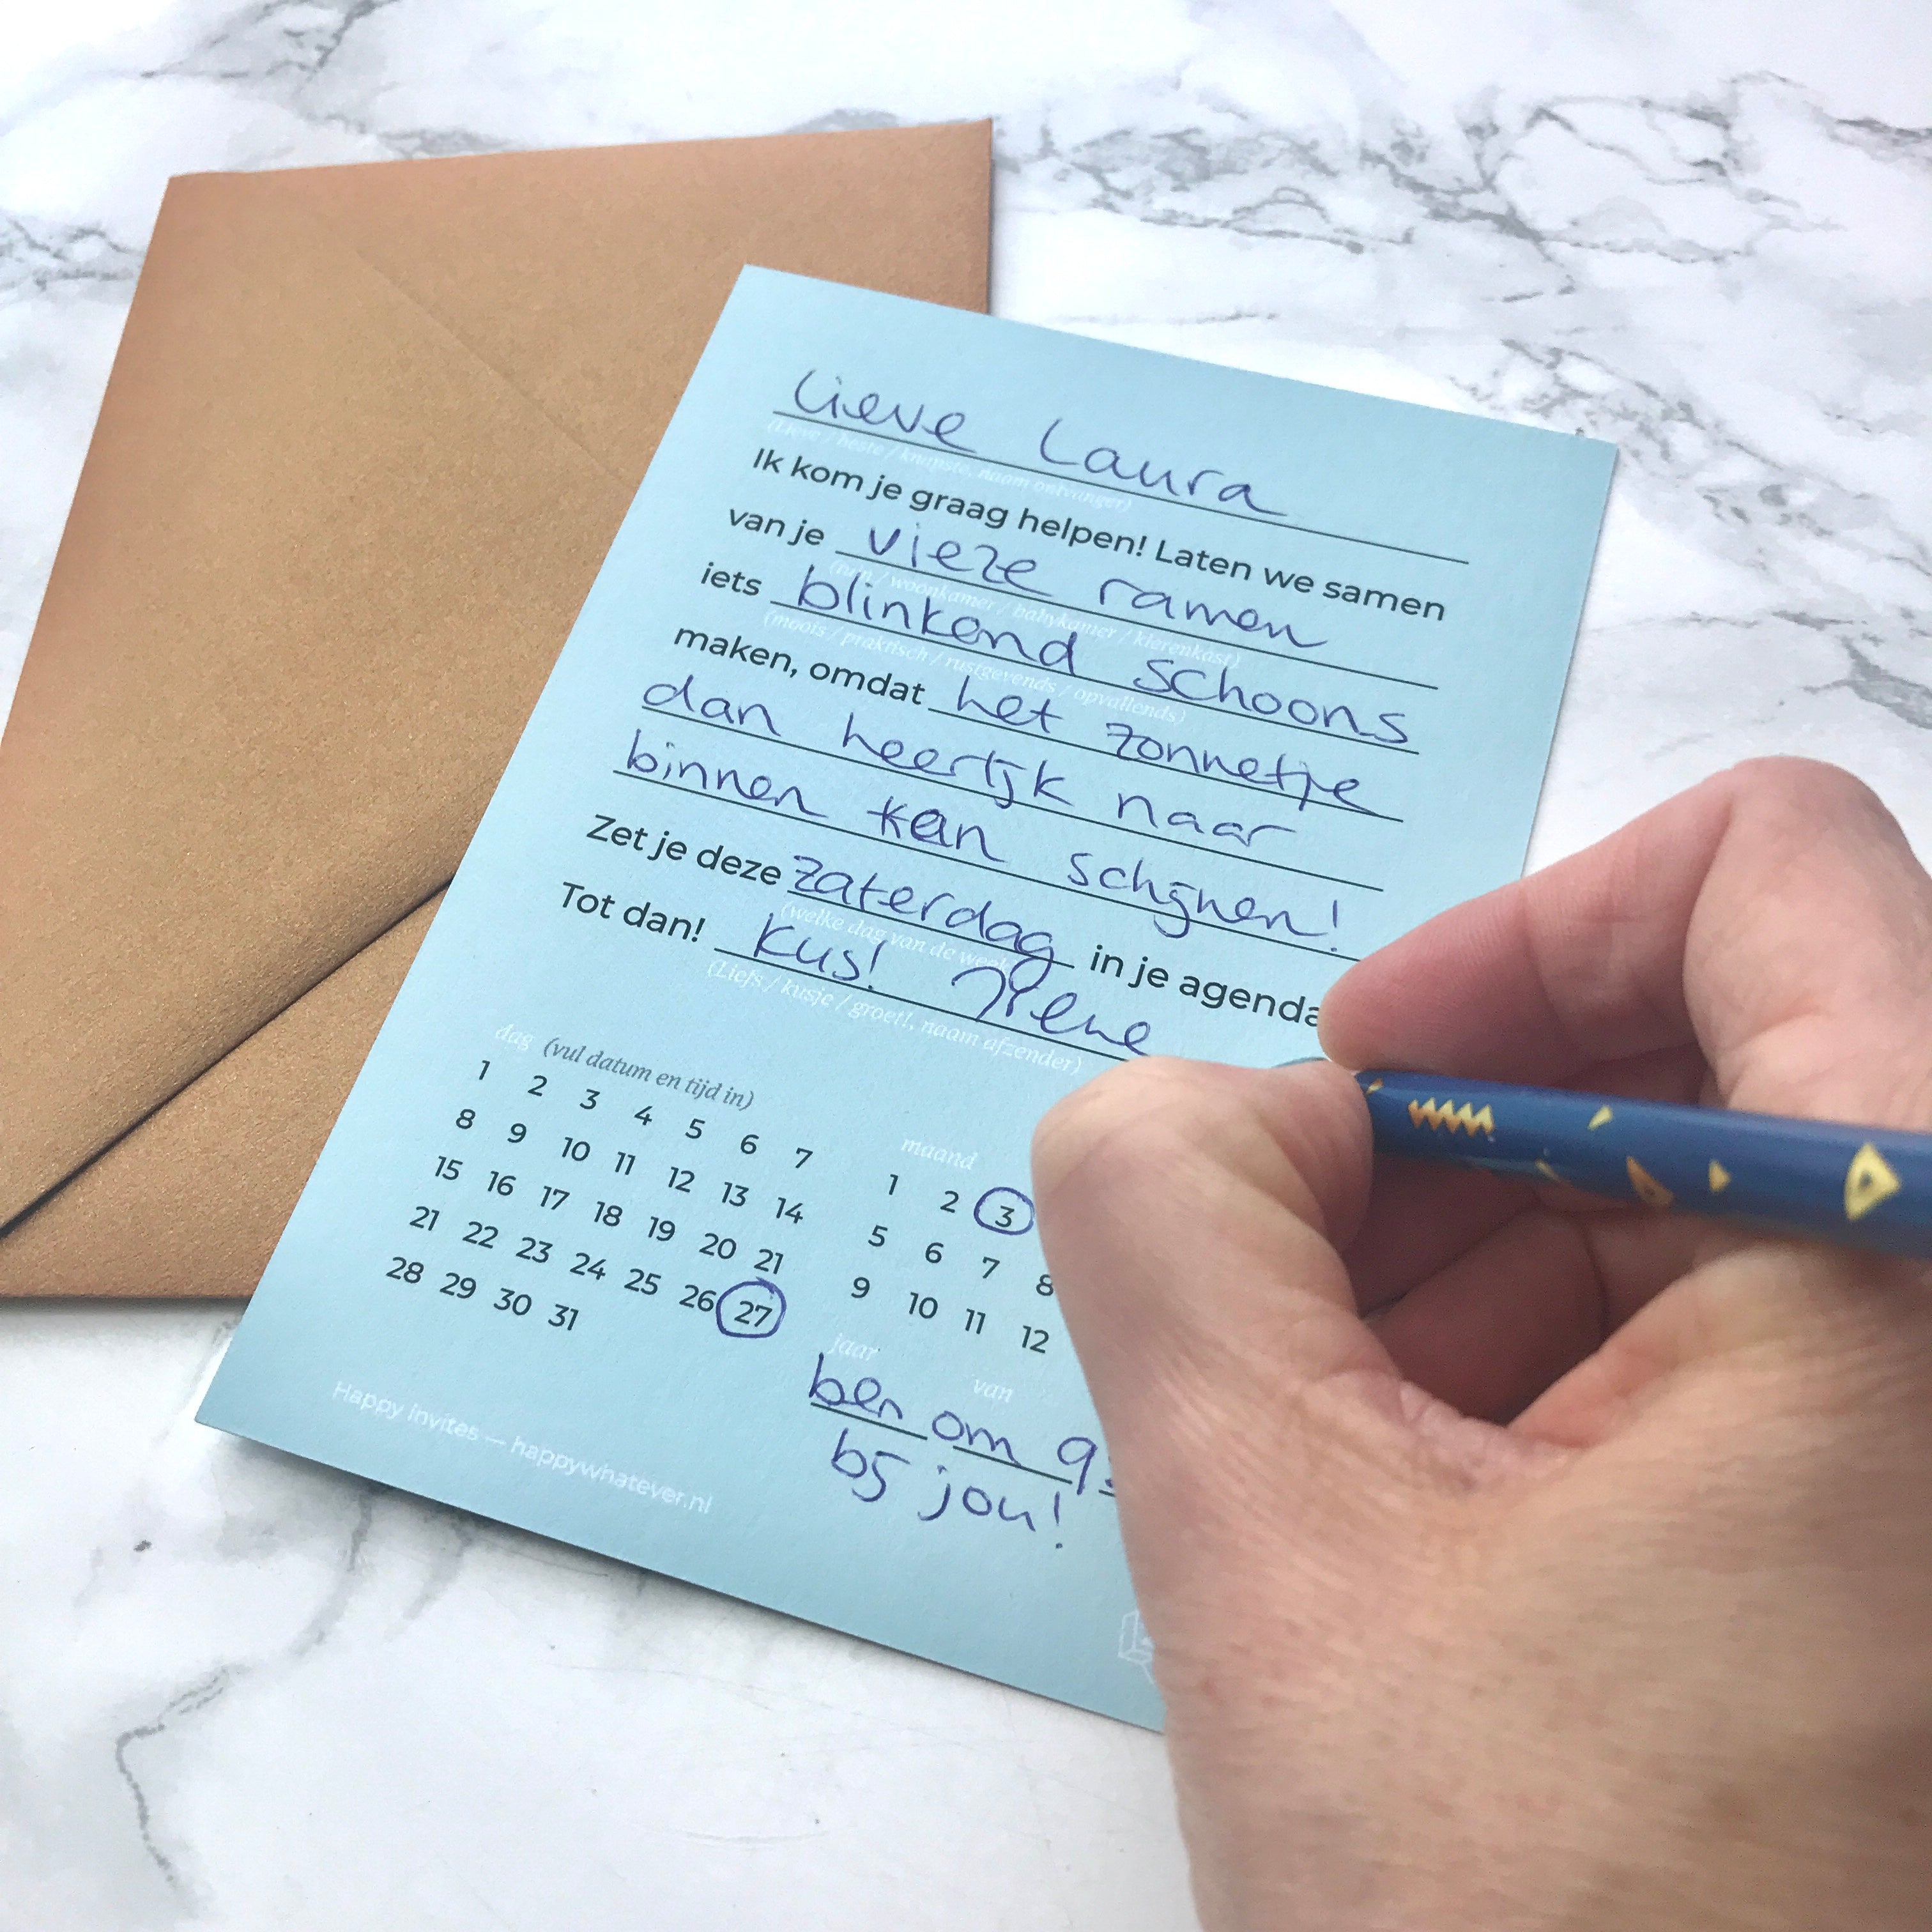 Lieve Laura
(Lieve / beste / knapste, naam ontvanger)
Ik kom je graag helpen! Laten we samen
van je vieze ramen
(tuin / woonkamer / babykamer / klerenkast)
iets blinkend schoons
(moois / praktisch / rustgevends / opvallends)
maken, omdat het zonnetje
dan heerlijk naar
binnen kan schijnen!
Zet je deze zaterdag in je agenda
(welke dag van de week)
Tot dan! Kus! Irene
(Liefs / kusje / groet!, naam afzender)
dag (vul datum en tijd in)
1 2 3 4 5 6 7
8 9 10 11 12 13 14
15 16 17 18 19 20 21
21 22 23 24 25 26 27
28 29 30 31
maand
1 2 3
5 6 7 8
9 10 11 12
jaar van
ben om 9
bij jou!
Happy Invites — happywhatever.nl